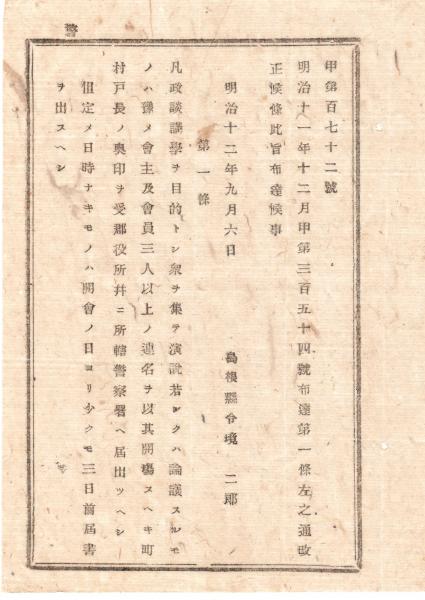 警
甲第百七十二號
明治十一年十二月甲第三百五十四號布達第一條左之通改
正候條此旨布達候事
明治十二年九月六日
島根縣令境 二郎
第一條
凡政談講學ヲ目的トシ衆ヲ集テ演説若シクハ論議スルモ
ノハ豫メ會主及會員三人以上ノ連名ヲ以其開場スヘキ町
村戸長ノ奥印ヲ受郡役所幷ニ所轄警察署ヘ屆出ツヘシ
但定メ日時ナキモノハ開會ノ日ヨリ少クモ三日前屆書
ヲ出スヘシ